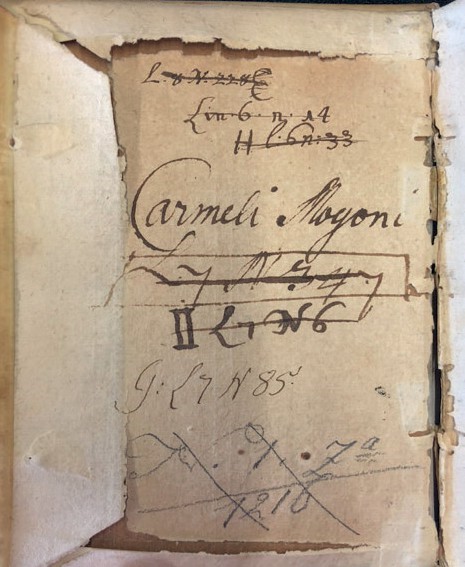 L. 8 N. 228
Lin. 6. n. 14
H l. 6 n. 33
Carmeli Mogoni
L 7 N 347
II L 7 N 6
J: L 7 N 85.
1. 7ª
1216